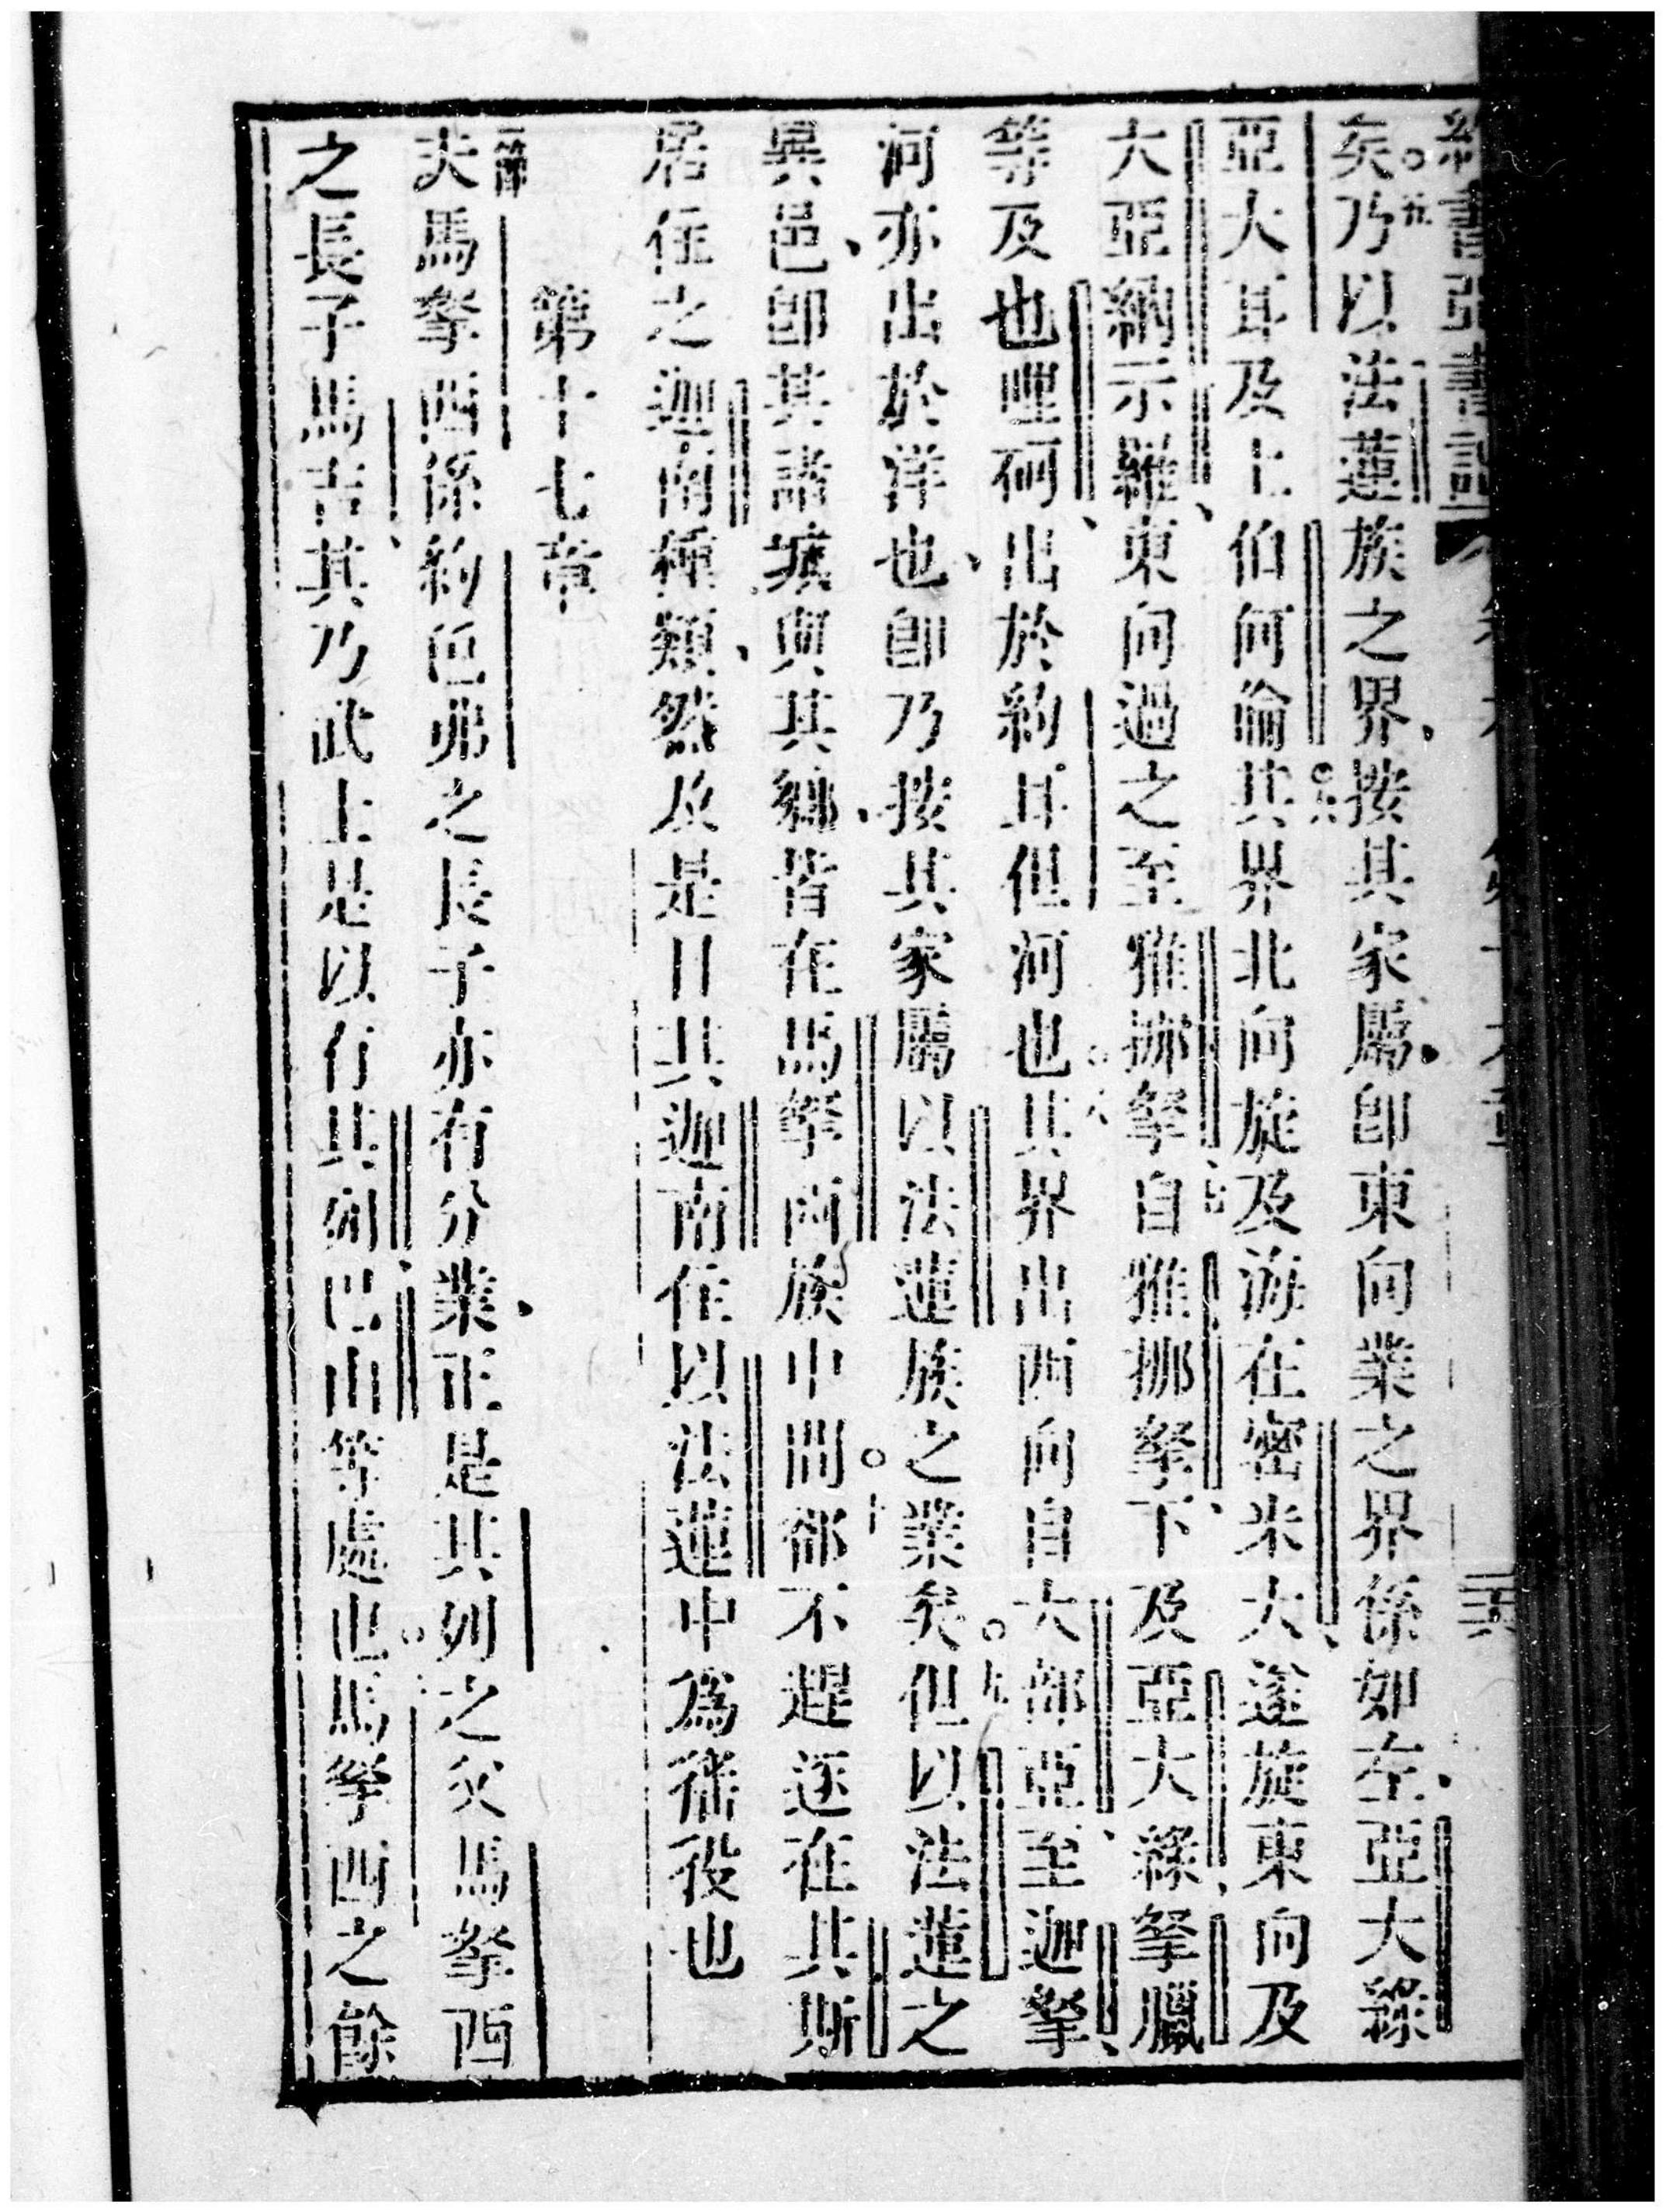 矣○五乃以法蓮族之界、按其家屬、卽東向業之界係如左、亞大綠
亞大耳及上伯何倫○六其界北向旋及海在密米大、遂旋東向及
大亞納示羅、東向過之至雅挪拏、七自雅挪拏、下及亞大綠、拏臘
等及也哩河、出於約耳但河也○八其界出西向自大部亞、至迦拏、
河亦出於洋也、卽乃按其家屬以法蓮族之業矣○九但以法蓮之
異邑、卽其諸掂與其鄉、皆在馬拏西族中間○十都不趕逐在其斯
居住之迦南種類、然及是日其迦南住以法蓮中為徭役也
第十七章
一節夫馬拏西係約色弗之長子亦有分業、正是其列之父馬拏西
之長子馬吉、其乃武士是以有其列、巴山等處也○二馬拏西之餘